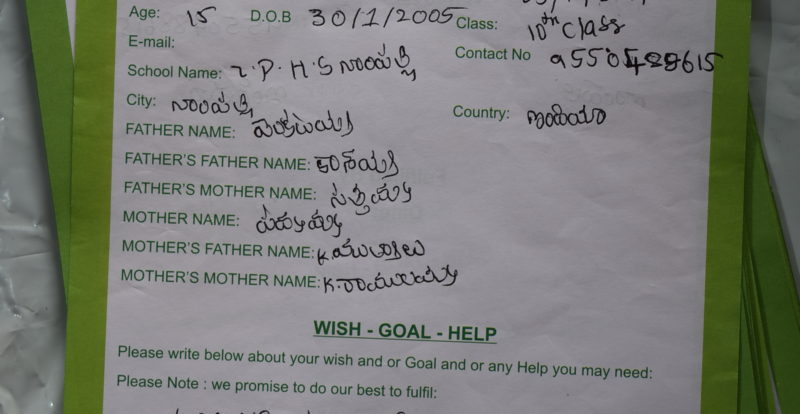 Age: 15 D.O.B 30/1/2005 Class: 10th Class
E-mail:
School Name: Z.P.H.S నాంపల్లి Contact No
City: నాంపల్లి Country: ఇండియా
FATHER NAME:
FATHER'S FATHER NAME:
FATHER'S MOTHER NAME: సత్తమ్మ
MOTHER NAME: పద్మమ్మ
MOTHER'S FATHER NAME: K.
MOTHER'S MOTHER NAME: K. రాములమ్మ
WISH - GOAL - HELP
Please write below about your wish and or Goal and or any Help you may need:
Please Note : we promise to do our best to fulfil: